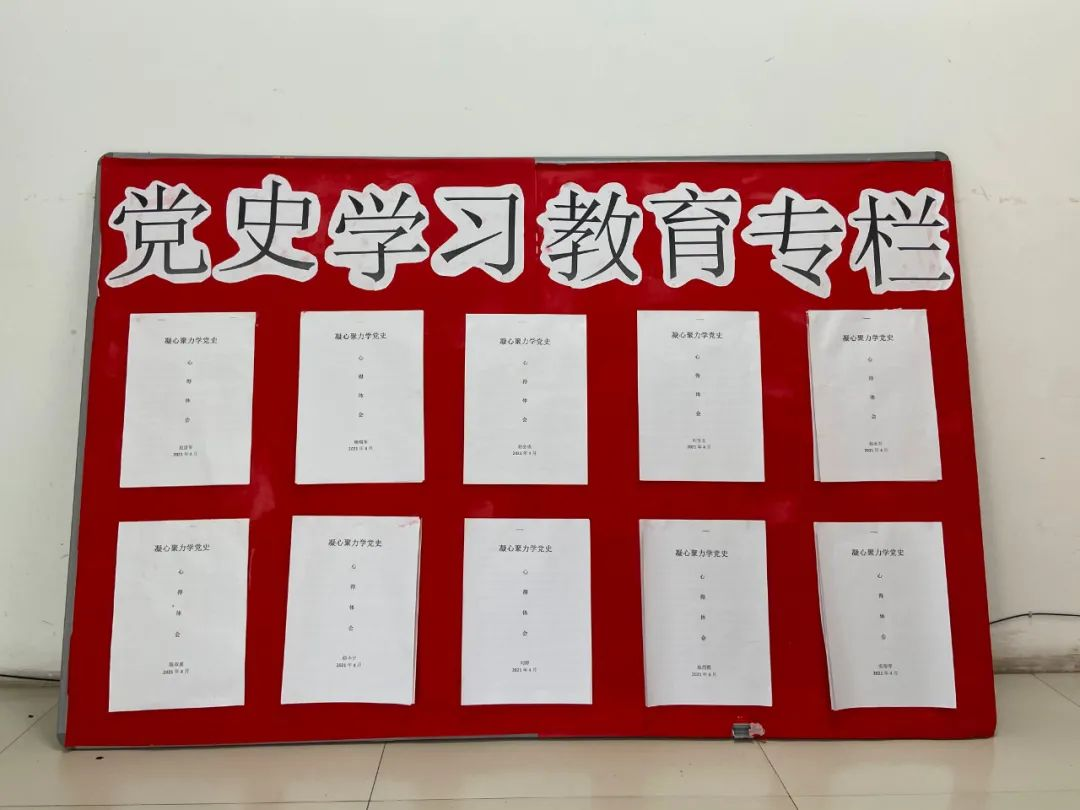 党史学习教育专栏
凝心聚力学党史
心得体会
2021年4月
凝心聚力学党史
心得体会
2021年4月
凝心聚力学党史
心得体会
2021年4月
凝心聚力学党史
心得体会
2021年4月
凝心聚力学党史
心得体会
2021年4月
凝心聚力学党史
心得体会
2021年4月
凝心聚力学党史
心得体会
2021年4月
凝心聚力学党史
心得体会
2021年4月
凝心聚力学党史
心得体会
2021年4月
凝心聚力学党史
心得体会
2021年4月